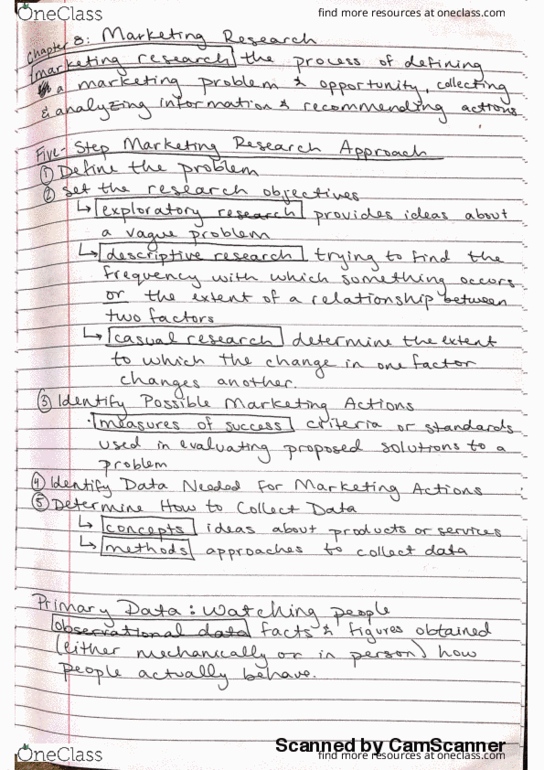 OneClass
find more resources at oneclass.com
Chapter 8: Marketing Research
marketing research the process of defining
a marketing problem & opportunity, collecting
& analyzing information & recommending actions
Five-Step Marketing Research Approach
① Define the problem
② Set the research objectives
↳ exploratory research provides ideas about
a vague problem
↳ descriptive research trying to find the
frequency with which something occurs
or the extent of a relationship between
two factors
↳ casual research determine the extent
to which the change in one factor
changes another.
③ Identify Possible Marketing Actions
· measures of success criteria or standards
used in evaluating proposed solutions to a
problem
④ Identify Data Needed for Marketing Actions
⑤ Determine How to Collect Data
↳ concepts ideas about products or services
↳ methods approaches to collect data
Primary Data: Watching people
observational data facts & figures obtained
(either mechanically or in person) how
people actually behave.
Scanned by CamScanner
OneClass
find more resources at oneclass.com